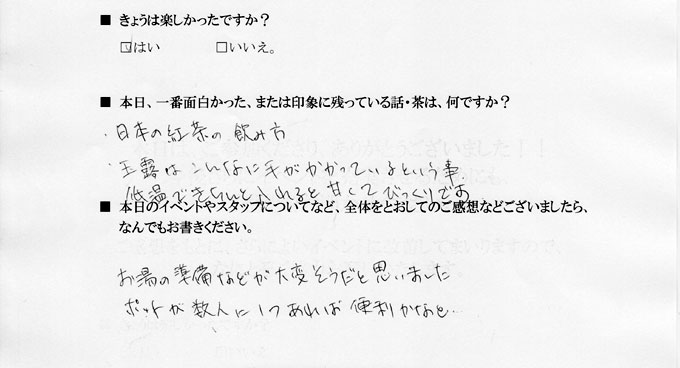 ■ きょうは楽しかったですか？
□はい □いいえ。
■ 本日、一番面白かった、または印象に残っている話・茶は、何ですか？
・日本の紅茶の飲み方
・玉露はこんなに手がかかっているという事
低温できちんと入れると甘くてびっくりです
■ 本日のイベントやスタッフについてなど、全体をとおしてのご感想などございましたら、
なんでもお書きください。
お湯の準備などが大変そうだと思いました
ポットが数人に1つあれば便利かなと…